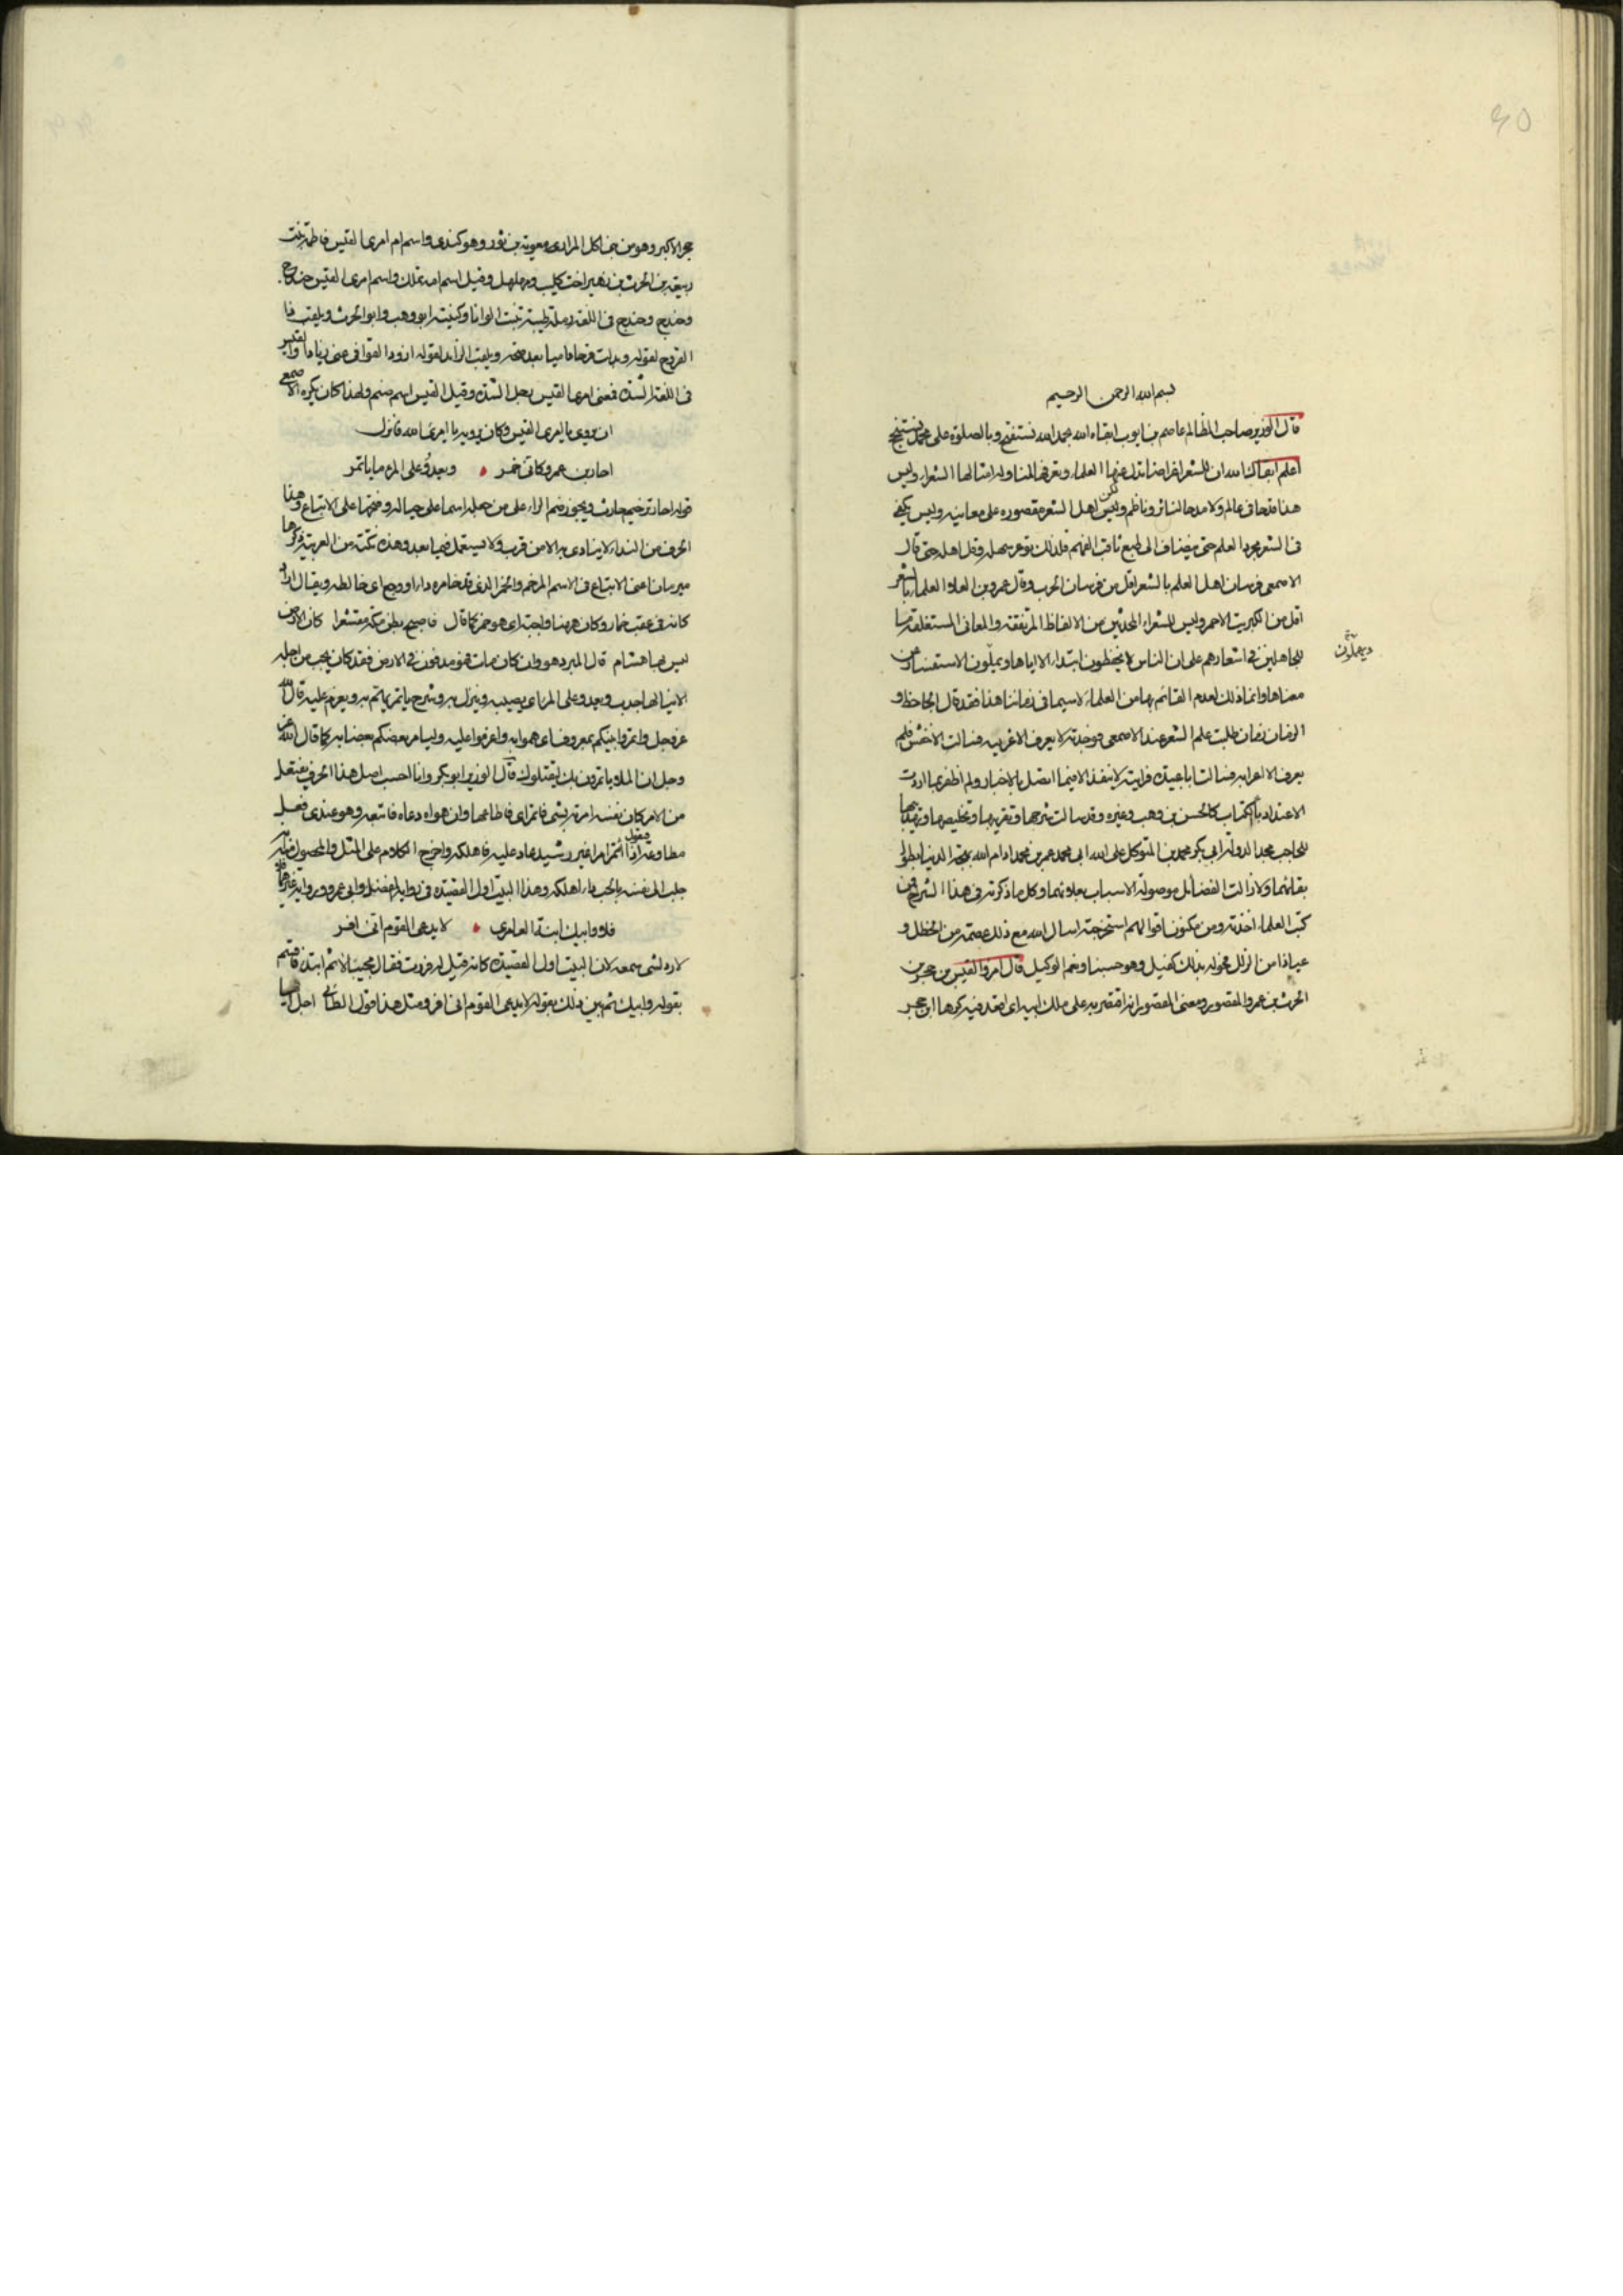 بسم الله الرحمن الرحيم
قال الوزير صاحب المظالم عاصم بن ايوب ابقاه الله بحمد الله نستفتح وبالصلوة على محمد نستنجح
اعلم ابقاك الله ان للشعر اغراضا تدل عنها العلماء وتعرفها لمناوله امثالها الشعراء وليس
هذا قدحا في عالم ولا مدحا لناثر وناظم وليس لكن اهل الشعره مقصوره على معانيه وليس يكفى
فى الشعر مجرد العلم حتى ينضاف الى طبع ثاقب الفهم فلذلك توعر سهله وقل اهله حتى قال
الاصمعى فرسان اهل العلم بالشعر اقل من فرسان الحرب وقال عمرو بن العلا والعلماء بالشعر
اقل من الكبريت الاحمر وليس للشعراء المحدثين من الالفاظ المرتفقه والمعانى المستغلقه ما
للجاهلين فى اشعارهم على ان الناس لا يحفظون ابتداء الا اياها ويملّون الاستفسار عن
معناها وانما ذلك لعدم القائم بها من العلماء لاسيما فى زماننا هذا فقد قال الجاحظ و
الزمان زمان طلبت علم الشعر عند الاصمعى فوجدته لا يعرف الا غريبه فسالت الاخفش فلم
يعرف الا اعرابه فسالت ابا عبيدة فرايته لا ينفذ الا فيما اتصل بالاخبار ولم اظفر بما اردت
الا عند ادباء الكتاب كالحسن بن وهب وغيره وقد سالت شرحها وتقريبها وتخليصها وتهذيبها
للحاجب مجد الدولة ابى بكر محمد بن المتوكل على الله ابى محمد عمر بن محمد ادام الله بهجة الدنيا بطول
بقائهما ولا زالت الفضائل موصولة الاسباب بعلائهما وكل ما ذكرته فى هذا الشرح فمن
كتب العلماء اخذته ومن مكنون اقوالهم استخرجته اسال الله مع ذلك عصمته من الخطل و
عياذا من الزلل فحوله بذالك كفيل وهو حسبنا ونعم الوكيل قال امرؤ القيس بن حجر بن
الحرث بن عمرو المقصور ومعنى المقصور انه اقتصر به على ملك ابيه اى اقعد فيه كرها ابن حجر
حجر الاكبر وهو من بنى اكل المرار بن معوية بن ثور وهو كندى واسم ام امرى القيس فاطمة بنت
ربيعة بن الحرث بن زهير اخت كليب ومهلهل وقيل اسم امه تملك واسم امرى القيس حندج
وحندج وحندج فى اللغة رملة طيبة تنبت الوانا وكنيته ابو وهب وابو الحرث ويلقب ذا
القروح لقوله وبدلت قرحا داميا بعد صحة ويلقب الزائد لقوله اذود القوافى عنى ذيادا والقيس
فى اللغة الشدة فمعنى امرى القيس رجل الشدة وقيل القيس اسم صنم ولهذا كان يكره الاصمعى
ان يروى يا امرى القيس وكان يرويه يا امرئ الله فانزل
احار بن عمرو كانى خمر ويعدُو على المرء ما ياتمر
قوله احار ترخيم حارث ويجوز ضم الراء على من جعله اسما على حياله وفتحها على الاتباع وهذا
الحرف من النداء لا ينادى به الا من قرب ولا يستعمل فيما بعد وهذه نكتة من العربية ذكرها
كانه فى عقب خمار وكان هيهنا واجبة اى هو خمر كما قال فاصبح بطن مكة مقشعرا كان الارض
ليس بها هشام قال المبرد هو وان كان مات فهو مدفون فى الارض فقد كان يجب من اجله
عز وجل وائتمروا بينكم بمعروف اى هموا به واعزموا عليه وليامر بعضكم بعضا به كما قال الله عز
وجل ان الملا ياتمرون بك ليقتلوك قال الوزير ابو بكر وانا احسب اصل هذا الحرف يفتعل
من الامر كان نفسه امرته بشى فائتمر اى فاطاعها وان هواه دعاه فاتبعه وهو عندى فعل
مطاوعة فيقول اذا ائتمر امرا غير رشيد عاد عليه فاهلكه واخرج الكلام على المثل
جلب الى نفسه بالحب ما اهلكه وهذا البيت اول القصيدة فى رواية المفضل وابى عمرو ورواية غيرهما
فلا وابيك ابنة العامرى لا يدعى القوم انى افر
لا رد لشى سمعه لان البيت اول القصيدة كانه قيل له فررت فقال مجيبا لا ثم ابتدا قسم
بقوله وابيك ثم بين ذلك بقوله لا يدعى القوم انى افر ومثل هذا قول الطائى اجل ايها